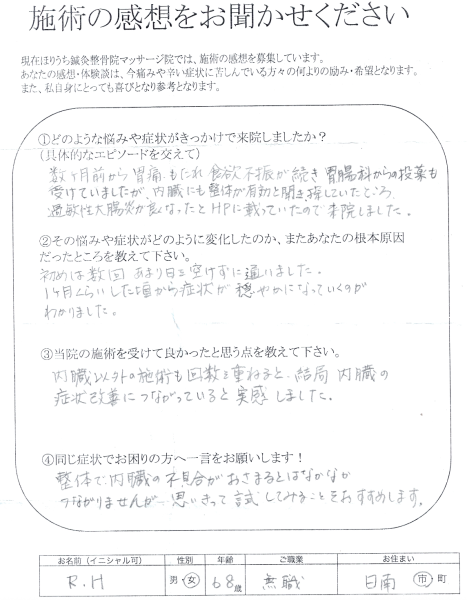 施術の感想をお聞かせください
現在ほりうち鍼灸整骨院マッサージ院では、施術の感想を募集しています。
あなたの感想・体験談は、今痛みや辛い症状に苦しんでいる方々の何よりの励み・希望となります。
また、私自身にとっても喜びとなり参考となります。
①どのような悩みや症状がきっかけで来院しましたか？
(具体的なエピソードを交えて)
数ヶ月前から胃痛、もたれ 食欲不振が続き 胃腸科からの投薬も
受けていましたが、内臓にも整体が有効と聞き、探していたところ、
過敏性大腸炎が良くなったとHPに載っていたので来院しました。
②その悩みや症状がどのように変化したのか、またあなたの根本原因
だったところを教えて下さい。
初めは数回 あまり日を空けずに通いました。
1ヶ月くらいした頃から症状が穏やかになっていくのが
わかりました。
③当院の施術を受けて良かったと思う点を教えて下さい。
内臓以外の施術も回数を重ねると、結局 内臓の
症状改善につながっていると実感しました。
④同じ症状でお困りの方へ一言をお願いします！
整体で内臓の不具合がおさまるとはなかなか
つながりませんが 思いきって試してみることをおすすめします。
お名前 (イニシャル可) 性別 年齢 ご職業 お住まい
R.H 男・女 68歳 無職 日南 市 町